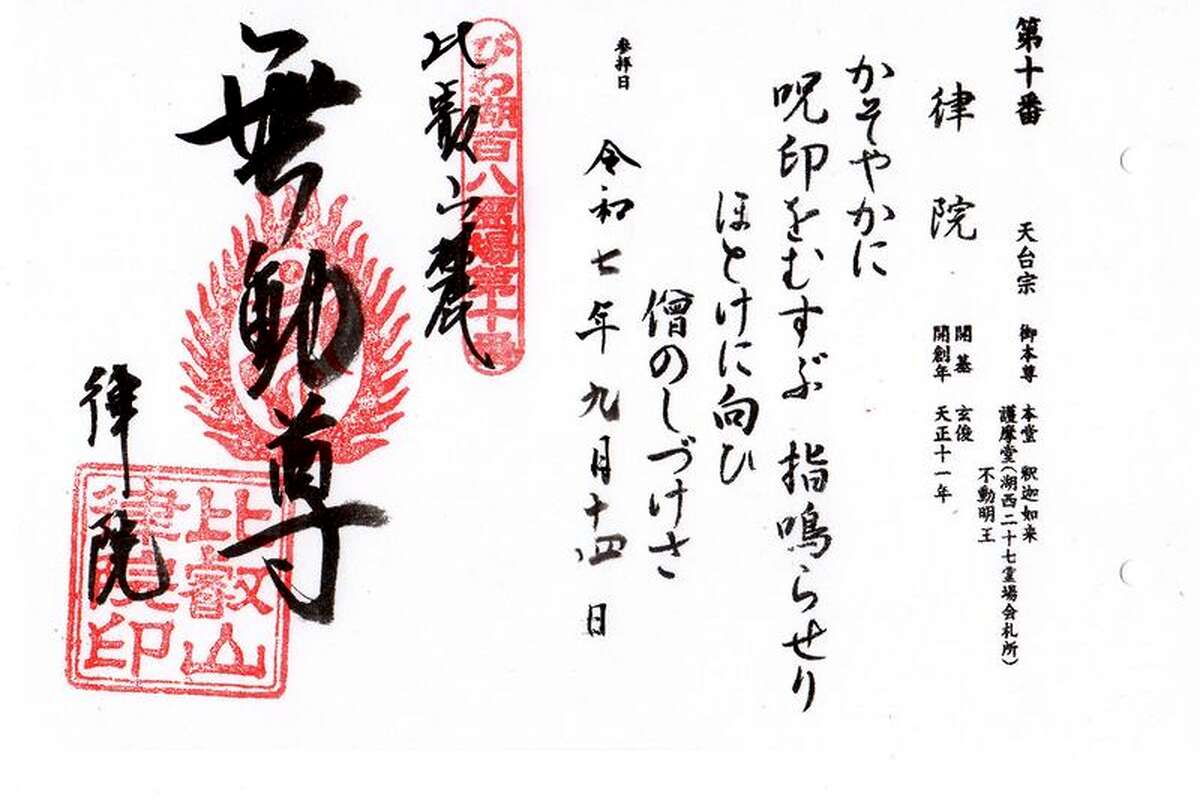 第十番
天台宗 御本尊 本堂 釈迦如来
護摩堂(湖西二十七霊場会札所)
不動明王
律院
開基 玄俊
開創年 天正十一年
かそやかに
呪印をむすぶ 指鳴らせり
ほとけに向ひ
僧のしづけさ
参拝日 令和七年九月十四日
びわ湖百八霊場第十番
比叡山麓
無動尊
律院
比叡山
律院印